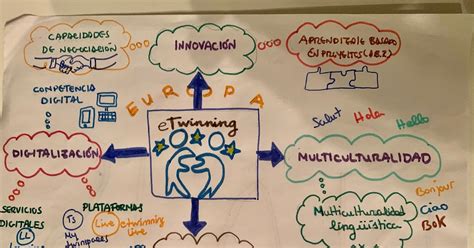 CAPACIDADES
DE NEGOCIACIÓN
INNOVACIÓN
APRENDIZAJE BASADO
EN PROYECTOS (A.B.P.)
COMPETENCIA
DIGITAL
EUROPA
eTwinning
Salut Hola Hello
DIGITALIZACIÓN
MULTICULTURALIDAD
SERVICIOS
DIGITALES
PLATAFORMAS
Ts
My
twinspace
Live
etwinning
live
Multiculturalidad
lingüística
Bonjour
Ciao